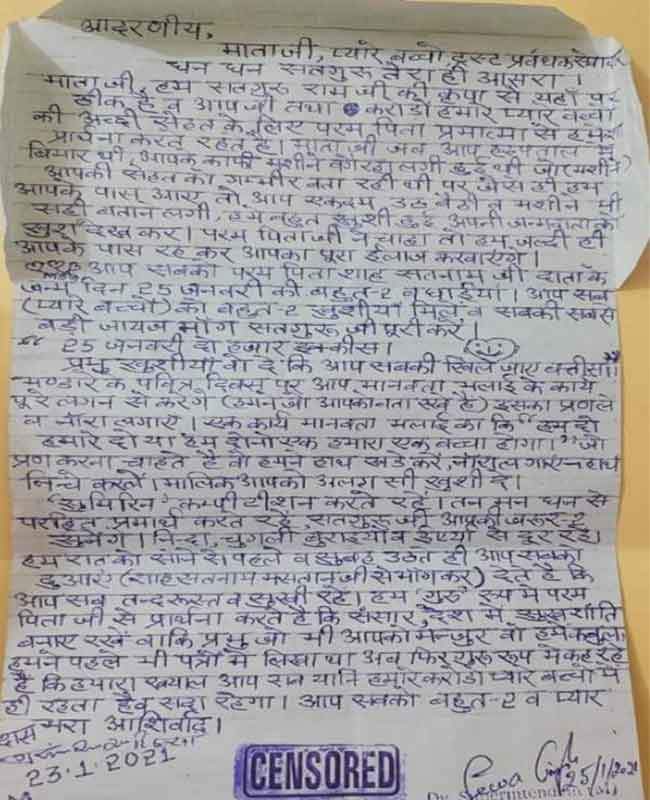 आदरणीय,
माताजी, प्यारे बच्चो, ट्रस्ट प्रबंधक सेवादार
धन धन सतगुरु तेरा ही आसरा ।
माताजी, हम सतगुरु राम जी की कृपा से यहाँ पर
ठीक है व आपजी तथा करोड़ों हमारे प्यारे बच्चों
की अच्छी सेहत के लिए परम पिता प्रमात्मा से हमेशा
प्रार्थना करते रहते हैं। माता जी जब आप हस्पताल में
बिमार थी, आपके काफी मशीने वगैरहा लगी हुई थी जो (मशीने)
आपकी सेहत को गम्भीर बता रही थी पर जैसे ही हम
आपके पास आए तो आप एकदम उठ बैठी व मशीनें भी
सही बताने लगी, हमें बहुत खुशी हुई अपनी जन्मदाता को
खुश देख कर। परम पिताजी ने चाहा तो हम जल्दी ही
आपके पास रह कर आपका पूरा ईलाज करवाएंगे।
आप सबको परम पिता शाह सतनाम जी दाता के
जन्म दिन 25 जनवरी की बहुत-2 बधाईयां। आप सब
(प्यारे बच्चों) को बहुत-2 खुशीयां मिले व सबकी सबसे
बड़ी जायज मांग सतगुरु जी पूरी करें।
" 25 जनवरी दो हजार इक्कीस।
प्रभु खुशीयां वो दे कि आप सबकी खिल जाए बत्तीसी।"
भण्डारे के पवित्र दिवस पर आप मानवता भलाई के कार्य
पूरे लगन से करेंगे (हमने जो आपको बता रखे है) इसका प्रण लें
व नारा लगाएं। एक कार्य मानवता भलाई का कि "हम दो
हमारे दो या हम दोनो एक हमारा एक बच्चा होगा।" जो
प्रण करना चाहते है वो हमने हाथ खड़े करें, नारा लगाएं हाथ
निचे करलें। मालिक आपको अलग सी खुशी दें।
सुमिरिन कम्पीटीशन करते रहें। तन मन धन से
परहित प्रमार्थ करते रहें, सतगुरु जी आपकी जरूर-2
सुनेंगे। निन्दा, चुगली बुराईयों व ईर्ष्या से दूर रहें।
हम रात को सोने से पहले व सुबह उठते ही आप सबको
दुआएं (शाह सतनाम मस्तान जी से मांग कर) देते है कि
आप सब तन्दरूस्त व सुखी रहें। हम 'गुरु' रूप में परम
पिता जी से प्रार्थना करते है कि संसार, देश में सुख शांति
बनाए रखें बाकि प्रभु जो भी आपको मन्जुर वो हमें कबूल।
हमने पहले भी पत्रों में लिखा था अब फिर गुरु रूप में कह रहे
है कि हमारा ख्याल आप सब यानि हमारे करोड़ो प्यारे बच्चों में
ही रहता है व सदा रहेगा। आप सबको बहुत-2 व प्यार
भरा आशिर्वाद।
दास
23.1.2021
CENSORED
25/1/2021